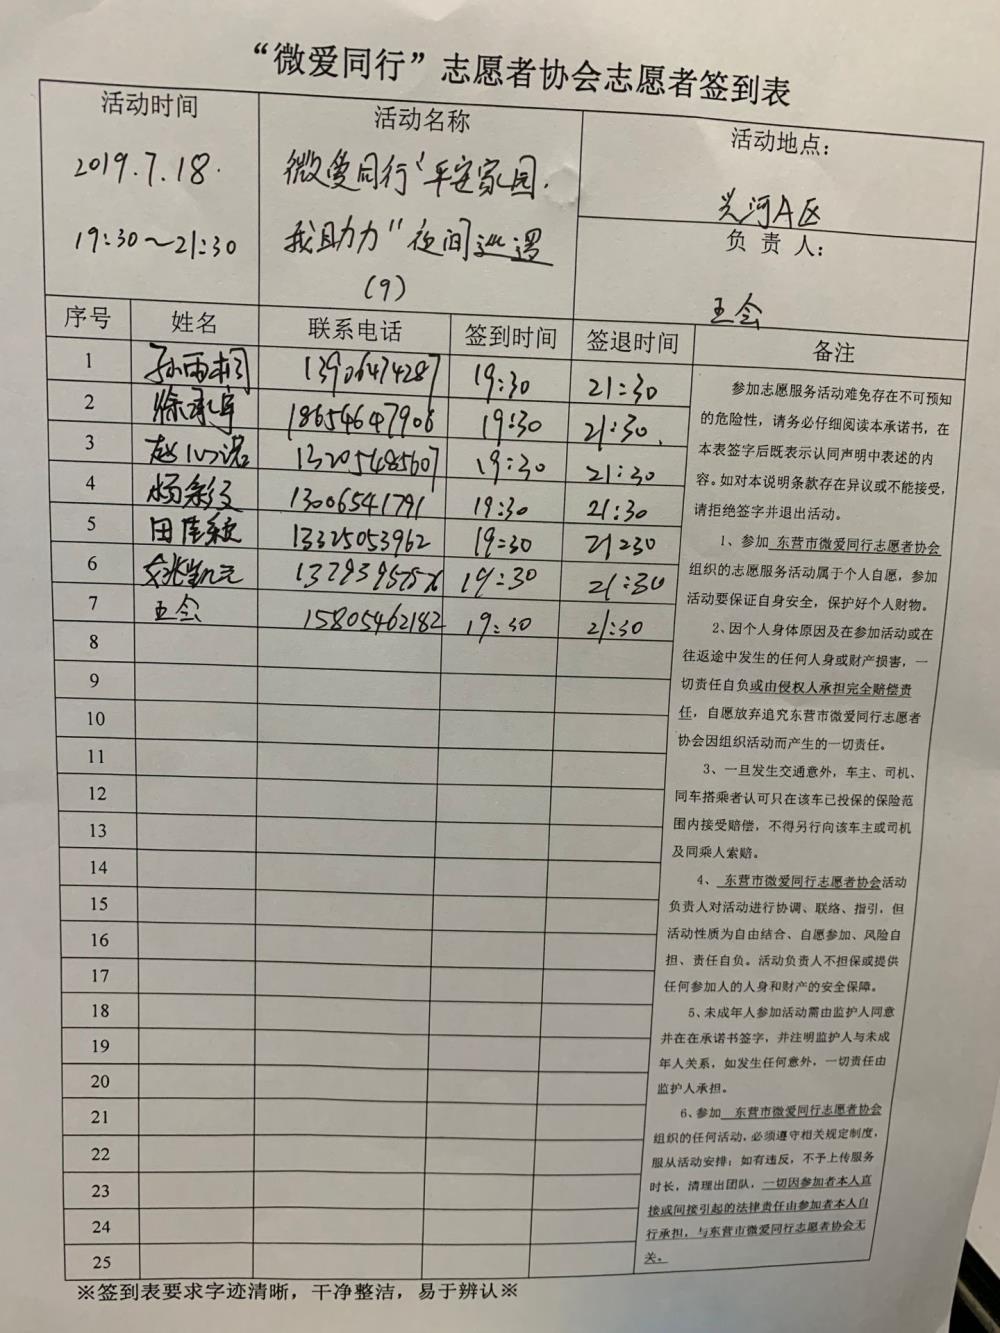 “微爱同行”志愿者协会志愿者签到表
活动时间
2019.7.18.
19:30～21:30
活动名称
微爱同行“平安家园.
我助力”夜间巡逻
(9)
活动地点:
河A区
负 责 人:
王会
序号 姓名 联系电话 签到时间 签退时间 备注
1 孙雨桐 13906474287 19:30 21:30
2 徐承宇 18654647906 19:30 21:30.
3 赵心诺 13205485607 19:30 21:30
4 杨 13006541791 19:30 21:30
5 田佳 13325053962 19:30 21:30
6 19:30 21:30
7 王会 15805462182 19:30 21:30
8
9
10
11
12
13
14
15
16
17
18
19
20
21
22
23
24
25
参加志愿服务活动难免存在不可预知
的危险性，请务必仔细阅读本承诺书，在
本表签字后既表示认同声明中表述的内
容。如对本说明条款存在异议或不能接受，
请拒绝签字并退出活动。
1、参加 东营市微爱同行志愿者协会
组织的志愿服务活动属于个人自愿，参加
活动要保证自身安全，保护好个人财物。
2、因个人身体原因及在参加活动或在
往返途中发生的任何人身或财产损害，一
切责任自负或由侵权人承担完全赔偿责
任，自愿放弃追究东营市微爱同行志愿者
协会因组织活动而产生的一切责任。
3、一旦发生交通意外，车主、司机、
同车搭乘者认可只在该车已投保的保险范
围内接受赔偿，不得另行向该车主或司机
及同乘人索赔。
4、 东营市微爱同行志愿者协会活动
负责人对活动进行协调、联络、指引，但
活动性质为自由结合、自愿参加、风险自
担、责任自负。活动负责人不担保或提供
任何参加人的人身和财产的安全保障。
5、未成年人参加活动需由监护人同意
并在在承诺书签字，并注明监护人与未成
年人关系，如发生任何意外，一切责任由
监护人承担。
6、参加 东营市微爱同行志愿者协会
组织的任何活动，必须遵守相关规定制度，
服从活动安排；如有违反，不予上传服务
时长，清理出团队，一切因参加者本人直
接或间接引起的法律责任由参加者本人自
行承担，与东营市微爱同行志愿者协会无
关。
※签到表要求字迹清晰，干净整洁，易于辨认※